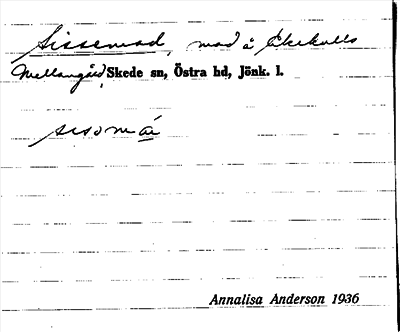 Sissemad, mad å Ekekulls
Mellangård, Skede sn, Östra hd, Jönk. l.
Annalisa Anderson 1936